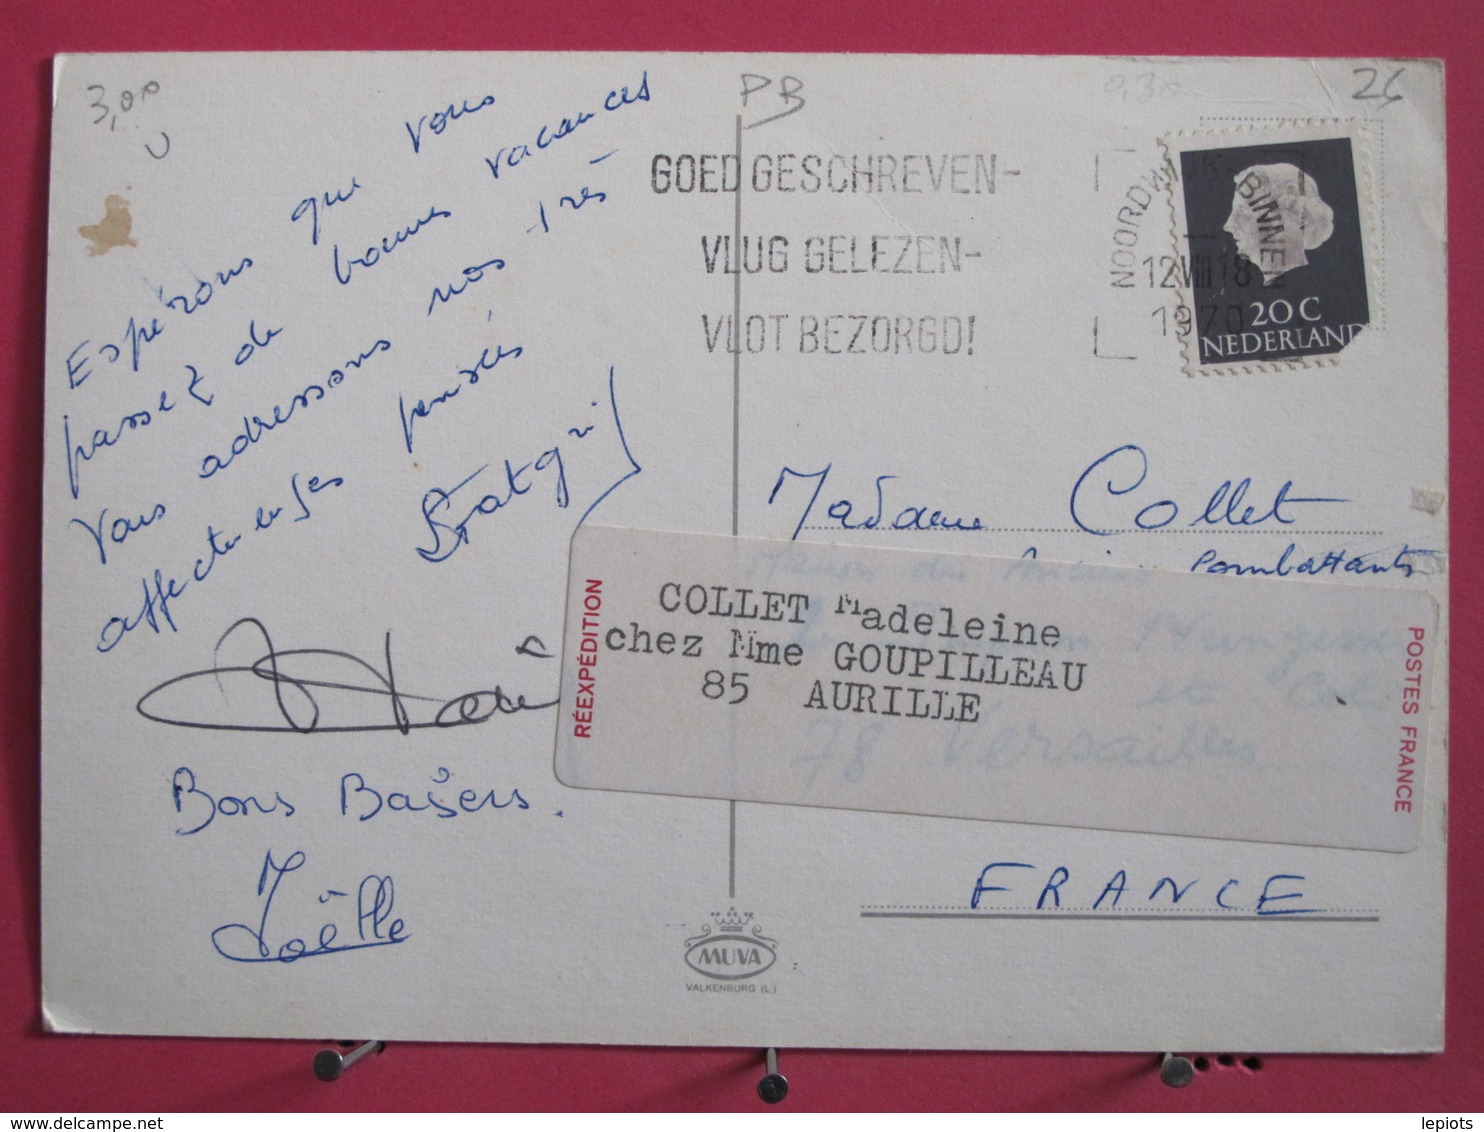 3,00
U
PB
0,30
26
Espérons que vous
passez de bonnes vacances
Vous adressons nos très
affectueuses pensées
Bons Baisers.
Joëlle
GOED GESCHREVEN-
VLUG GELEZEN-
VLOT BEZORGD!
NOORDWIJK BINNEN
12 VIII 18
1970
20 C
NEDERLAND
Madame Collet
Maison des Anciens Combattants
et
78 Versailles
RÉEXPÉDITION
COLLET Madeleine
chez Mme GOUPILLEAU
85 AURILLE
POSTES FRANCE
FRANCE
MUVA
VALKENBURG (L.)
lepiots